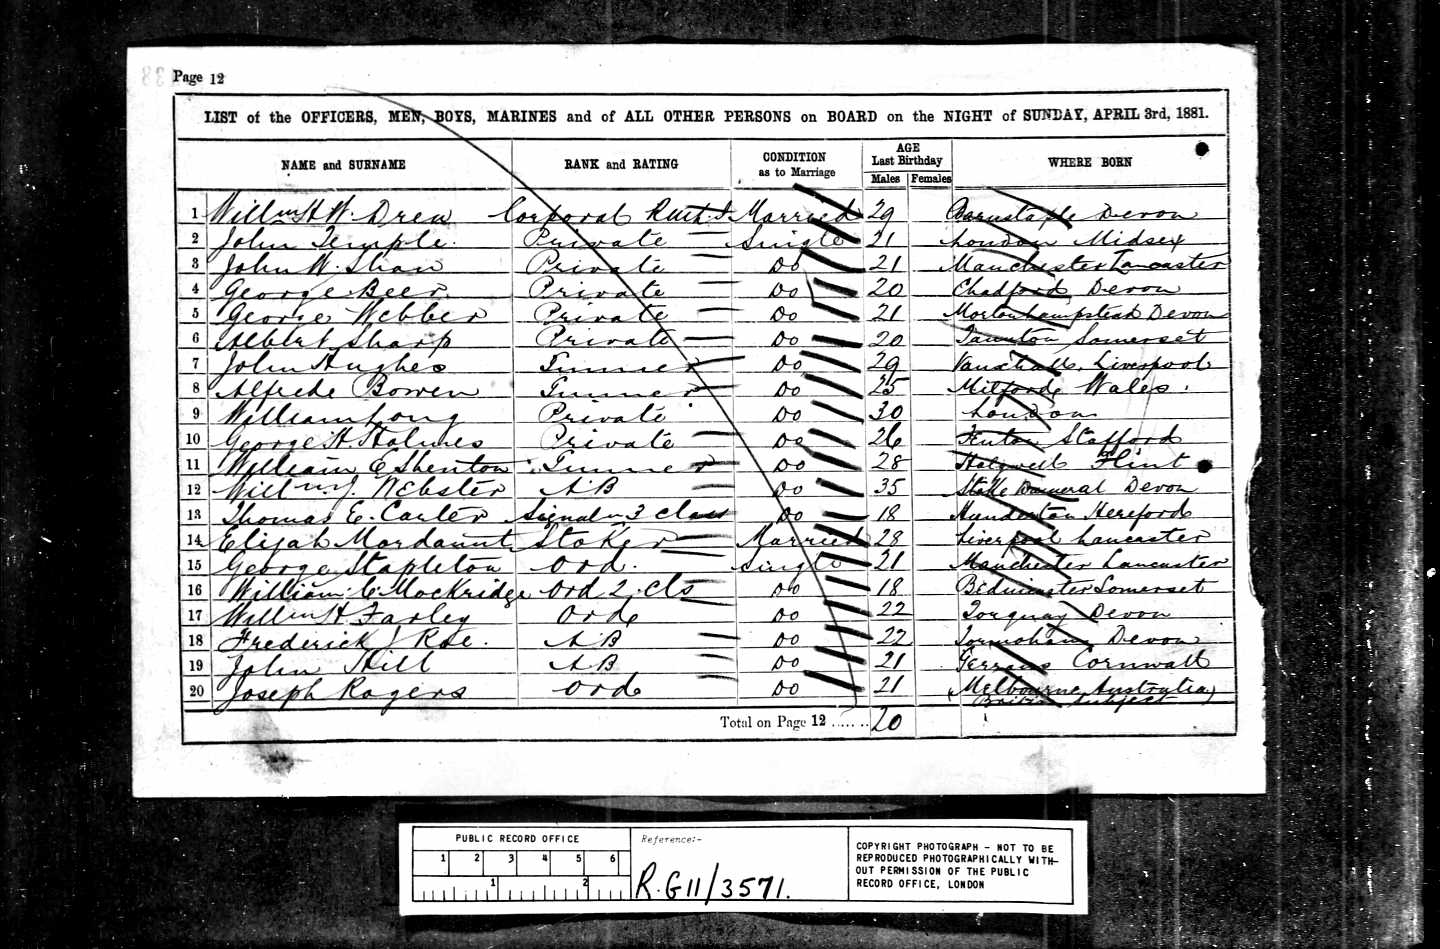 Page 12
LIST of the OFFICERS, MEN, BOYS, MARINES and of ALL OTHER PERSONS on BOARD on the NIGHT of SUNDAY, APRIL 3rd, 1881.
NAME and SURNAME RANK and RATING CONDITION as to Marriage AGE Last Birthday WHERE BORN
Males Females
1 Willm H W. Drew Corporal Married 29 Barnstaple Devon
2 John Temple. Private Single 21 London Midsex
3 John W. Shaw Private Do 21 Manchester Lancaster
4 George Beer Private Do 20 Chadford, Devon
5 George Webber Private Do 21 Mortonhampstead Devon
6 Albert Sharp Private Do 20 Taunton Somerset
7 John Hughes Gunner Do 29 Vauxhall, Liverpool
8 Alfrede Bowen Gunner Do 25 Milforde Wales.
9 William Long Private Do 30 London
10 George H. Holmes Private Do 26 Fenton Stafford
11 William E Shenton Gunner Do 28 Holywell Flint
12 Willm J. Webster A.B Do 35 Stoke Dameral Devon
13 Thomas E. Carter Signalm 3 class Do 18 Hunderton Hereford
14 Elijah Mordaunt Stoker Married 28 Liverpool Lancaster
15 George Stapleton Ord. Single 21 Manchester Lancaster
16 William C Mockridge Ord 2. cls Do 18 Bedminster Somerset
17 Willm H Farley Ord Do 22 Torquay Devon
18 Frederick J Roe. A B Do 22 Tormoham Devon
19 John Hill A B Do 21 Gerrans Cornwall
20 Joseph Rogers Ord Do 21 (Melbourne Australia)
British Subject
Total on Page 12 ........ 20
PUBLIC RECORD OFFICE
1 2 3 4 5 6
1 2
Reference:-
R.G11/3571.
COPYRIGHT PHOTOGRAPH - NOT TO BE
REPRODUCED PHOTOGRAPHICALLY WITH-
OUT PERMISSION OF THE PUBLIC
RECORD OFFICE, LONDON